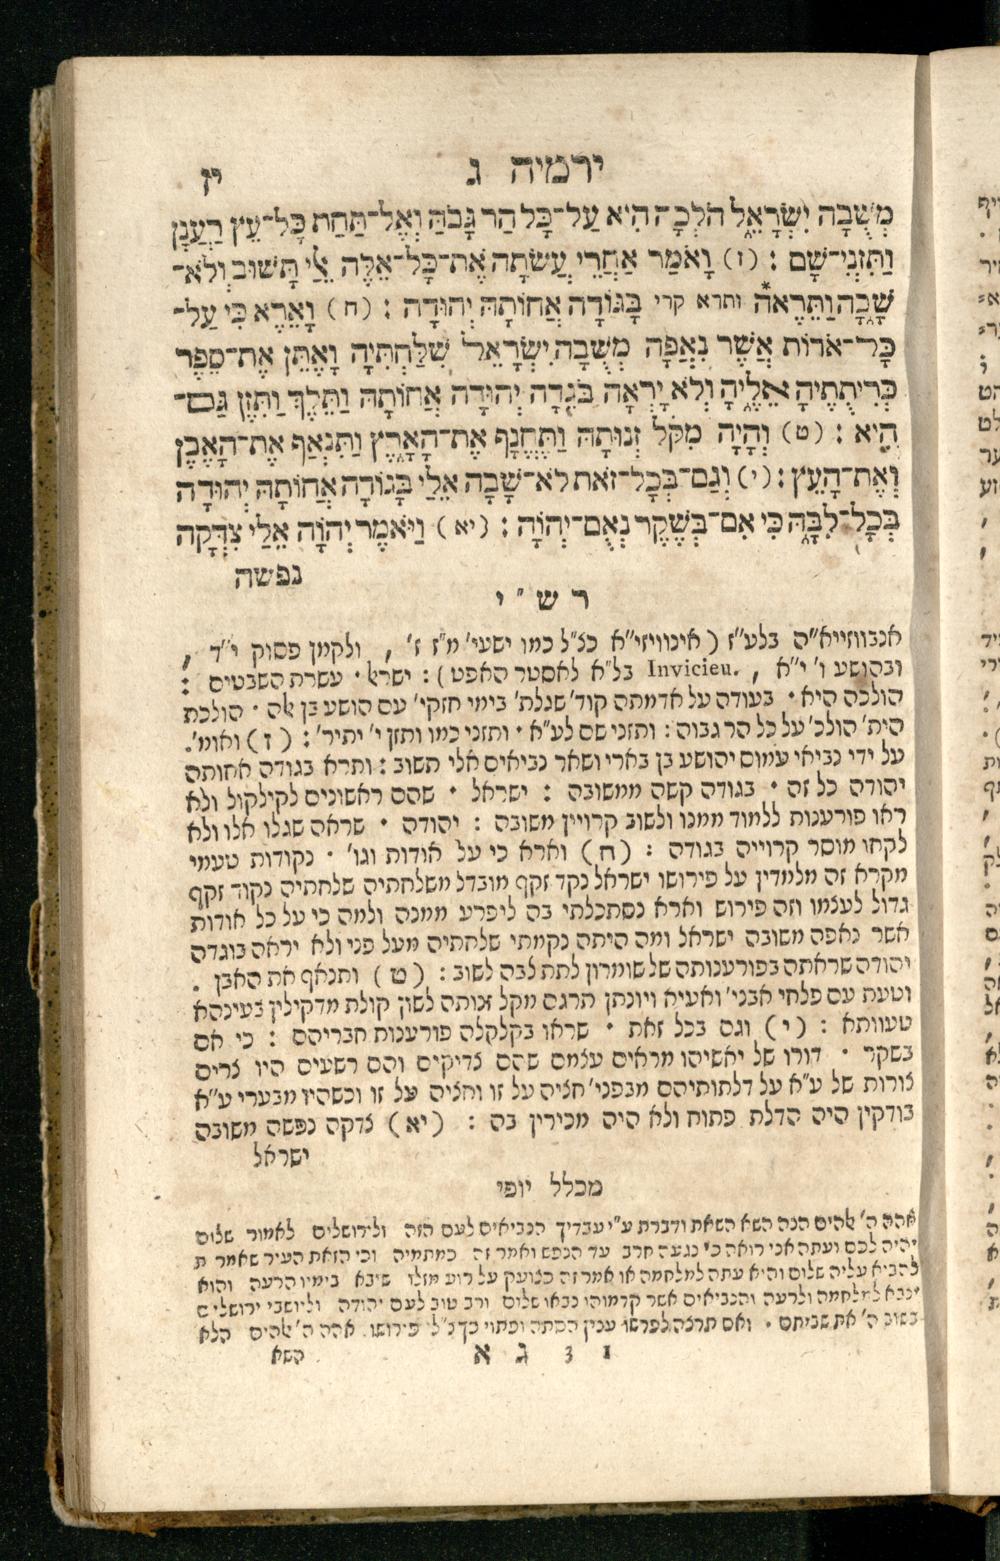 ירמיה ג
יז
מְשֻׁבָה יִשְׂרָאֵל הֹלְכָה הִיא עַל־כָּל הַר גָּבֹהַּ וְאֶל־תַּחַת כָּל־עֵץ רַעֲנָן
וַתִּזְנִי־שָׁם : (ז) וָאֹמַר אַחֲרֵי עֲשׂתָהּ אֶת־כָּל־אֵלֶּה אֵלַי תָּשׁוּב וְלֹא־
שָׁבָה וַתֵּרֶאה* ותרא קרי בָּגוֹדָה אֲחוֹתָהּ יְהוּדָה : (ח) וָאֵרֶא כִּי עַל־
כָּל־אֹדוֹת אֲשֶׁר נִאֲפָה מְשֻׁבָה יִשְׂרָאֵל שִׁלַּחְתִּיהָ וָאֶתֵּן אֶת־סֵפֶר
כְּרִיתֻתֶיהָ אֵלֶיהָ וְלֹא יָרְאָה בֹּגֵדָה יְהוּדָה אֲחוֹתָהּ וַתֵּלֶךְ וַתִּזֶן גַּם־
הִיא : (ט) וְהָיָה מִקֹּל זְנוּתָהּ וַתֶּחֱנַף אֶת־הָאָרֶץ וַתִּנְאַף אֶת־הָאֶבֶן
וְאֶת־הָעֵץ : (י) וְגַם־בְּכָל־זֹאת לֹא־שָׁבָה אֵלַי בָּגוֹדָה אֲחוֹתָהּ יְהוּדָה
בְּכָל־לִבָּהּ כִּי אִם־בְּשֶׁקֶר נְאֻם־יְהוָֹה : (יא) וַיֹּאמֶר יְהוָֹה אֵלַי צִדְּקָה
נפשה
ר ש " י
אנבווזייא"ה בלע"ז (אינוויזי"א כנ"ל כמו ישעי' מ"ז ז' , ולקמן פסוק י"ד ,
ובהושע ו' י"א , Invicieu. בל"א לאסטר האפט) : ישראל · עשרת השבטים :
הולכה היא · בעודה על אדמתה קוד' שגלת' בימי חזקי' עם הושע בן אלה · הולכת
הית' הולכ' על כל הר גבוה : ותזני שם לע"א · ותזני כמו ותזן י' יתיר' : (ז) ואומ'.
על ידי נביאי עמוס יהושע בן בארי ושאר נביאים אלי תשוב : ותרא בגודה אחותה
יהודה כל זה · בגודה קשה ממשובה : ישראל · שהם ראשונים לקילקול ולא
ראו פורענות ללמוד ממנו ולשוב קרויין משובה : יהודה · שראה שגלו אלו ולא
לקחו מוסר קרוייה בגודה : (ח) וארא כי על אודות וגו' · נקודות טעמי
מקרא זה מלמדין על פירושו ישראל נקד זקף מובדל משלחתיה שלחתיה נקוד זקף
גדול לעצמו וזה פירוש וארא נסתכלתי בה ליפרע ממנה ולמה כי על כל אודות
אשר נאפה משובה ישראל ומה היתה נקמתי שלחתיה מעל פני ולא יראה בוגדה
יהודה שראתה בפורענותה של שומרון לתת לבה לשוב : (ט) ותנאף את האבן .
וטעת עם פלחי אבני' ואעיא ויונתן תרגם מקל זנותה לשון קולת מדקילין בעינהא
טעוותא : (י) וגם בכל זאת · שראו בקלקלה פורענות חבריהם : כי אם
בשקר · דורו של יאשיהו מראים עצמם שהם צדיקים והם רשעים היו צרים
צורות של ע"א על דלתותיהם מבפני' חציה על זו וחציה על זו וכשהיו מבערי ע"א
בודקין היה הדלת פתוח ולא היה מכירין בה : (יא) צדקה נפשה משובה
ישראל
מכלל יופי
אהה ה' אלהים הנה השא השאת ודברת ע"י עבדיך הנביאים לעם הזה ולירושלים לאמור שלום
יהיה לכם ועתה אני רואה כי נגעה חרב עד הנפש ואמר זה כמתמיה וכי הזאת העיר שאמרת
להביא עליה שלום והיא עתה למלחמה או אמר זה כצועק על רוע מזלו שיבא בימיו הרעה והוא
ינבא למלחמה ולרעה והנביאים אשר קדמוהו נבאו שלום ורב טוב לעם יהודה וליושבי ירושלים
בשוב ה' את שביתם . ואם תרצה לפרשו ענין הסתה ופתוי כך נ"ל פירושו. אהה ה' אלהים הלא
השא
ג א 3 1